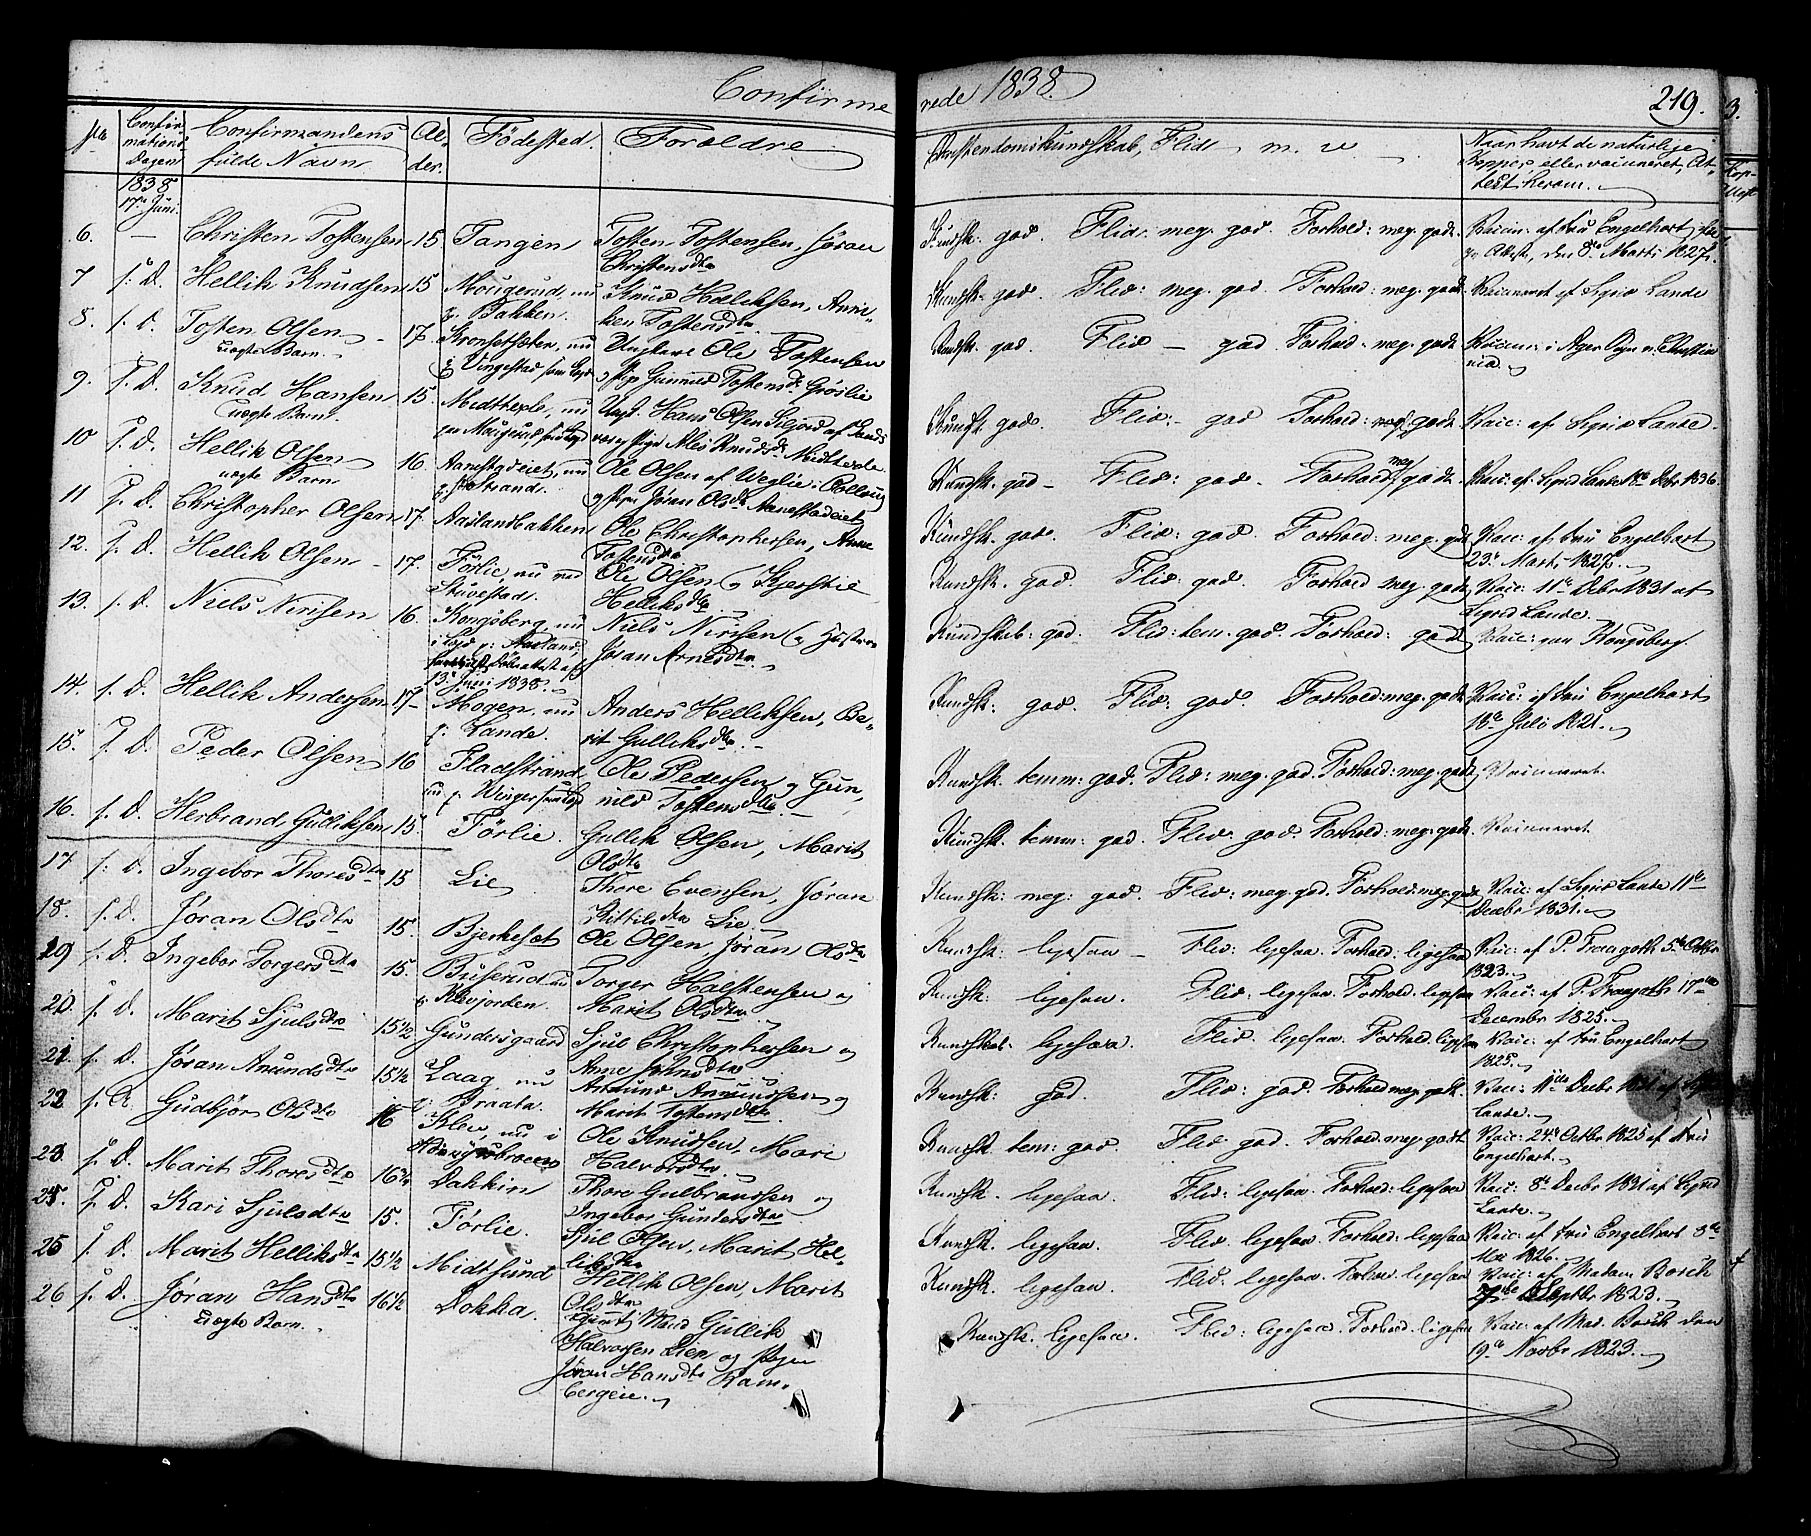 Confirmerede 1838.
219.
No
Confirmations Dagen
Confirmandens fulde Navn
Alder.
Fødested.
Forældre
Christendomskundskab, Flid m. v.
Naar havt de naturlige Kopper eller vaccineret, Attest herom.
1838 17de Juni.
6. — Christen Tostensen 15 Tangen Tosten Tostensen, Jøran Christensdtr Kundsk: god. Flid: meg. god Forhold: meg: godt. Vaccin: af Fru Engelhart den 8de Marts 1827.
7 s: D. Hellik Knudsen 15 Mougerud, nu p: Bakken. Knud Helliksen, Anniken Tostensdtr Kundsk: god. Flid: meg. god Forhold: meg. godt Vaccineret af Sigrid Lande
8. s. D. Tosten Olsen uægte Barn. 17. nu p Vingestad Ungkarl Ole Tostensen og Pige Gunnild Tostensdtr Grøslie Kundsk. god. Flid — god Forhold: meg. godt Vaccin: i Agers Sogn v. Christiania.
9. s. D. Knud Hansen uægte Barn. 15. Midttexle, nu paa Mougerud Ungk. Hans Olsen og Pige Knudsdtr Midttexle Kundsk. god. Flid.- god Forhold: meg godt Vacc: af Sigrid Lande.
10 s. D. Hellik Olsen uægte Barn 16. Aanestadeiet, nu p: Strand. Ole Olsen af Weglie og Pigen Jøran Olsdtr Aanestadeiet Kundsk. god - Flid: god. Forhold meg godt. Vacc: af Sigrid Lande Decbr 1836
11 s. D. Christopher Olsen 17. Aaslandbakken Ole Christophersen, Anne Tostensdtr Kundsk. god. Flid: god. Forhold: meg. godt Vacc: af Fru Engelhart 23de Marts 1827.
12. s. D. Hellik Olsen 17. Førlie, nu ved Stuvestad. Ole Olsen og Kjerstie Helliksdtr Kundsk. god. Flid: god. Forhold meg. godt Vacc: 11te Decbr 1831 af Sigrid Lande.
13. s. D. Niels Nirisen 16. Kongsberg, nu p: Aasland, 13de Juni 1838. Niels Nirisen og Hustrue Jøran Arnesdtr Kundskab: god. Flid: tem. god. Forhold: godt Vacc: paa Kongsberg.
14. s. D. Hellik Andersen 17 Mogen, nu p. Lande. Anders Helliksen, Berit Gulliksdtr. Kundsk: god. Flid: god. Forhold: meg. godt Vacc: af Fru Engelhart 18de Juli 1821.
15. s. D. Peder Olsen 16 Fladstrand, nu p: Winger Ole Pedersen og Gunnild Tostensdtr. Kundsk. temm: god. Flid: meg. god. Forhold: meg. godt Vaccineret.
16. s. D. Herbrand Gulliksen 15. Førlie. Gullik Olsen, Marit Olsdtr Kundsk. temm: god. Flid god. Forhold: meg: godt. Vaccineret.
17 s: D. Ingebor Thoresdtr 15 Lie Thore Evensen, Jøran Kittilsdtr Lie. Kundsk: meg: god. Flid: meg. god. Forhold: meg. godt Vacc: af Sigrid Lande 11te Decbr 1831.
18. s. D. Jøran Olsdtr 15. Bjerkeset Ole Olsen Jøran Olsdtr Kundsk: ligesaa - Flid: ligesaa. Forhold. ligesaa Vacc: af P. Traagoth 5te Octbr 1823.
19 s. D. Ingebor Torgersdtr 15. Buserud nu p: Klevjorden. Torger Halstensen og Marit Olsdtr Kundsk: ligesaa. Flid: ligesaa. Forhold. ligesaa Vacc: af P. Traagoth 17de December 1825.
20. s. D. Marit Sjulsdtr 15½ Gundersgaard Sjul Christophersen og Anne Johnsdtr Kundskab: ligesaa. Flid. ligesaa. Forhold. ligesaa Vacc: af Fru Engelhart 1825.
21. s. D. Jøran Anundsdtr 15½ Laag, nu p: Braata. Anund Anundssen og Marit Tostensdtr. Kundsk: god. Flid: god. Forhold meg. godt. Vacc: 11te Decbr af Lande.
22 s. D. Gudbjør Olsdtr 16 Klev, nu i Ole Knudsen, Mari Halvorsdtr Kundsk: tem: god Flid god. Forhold: meg: godt. Vacc: 24de Octbr 1825 af Fru Engelhart.
23. s. D. Marit Thoresdtr 16¼ Dokkin Thore Gulbrandsen og Ingebor Gundersdtr Kundsk. ligesaa. Flid: ligesaa. Forhold: ligesaa Vacc: 8de Decbr 1831 af Sigrid Lande.
25. s. D. Kari Sjulsdtr 15. Førlie. Sjul Olsen, Marit Helliksdtr Kundsk. ligesaa. Flid. ligesaa Forhold. ligesaa Vacc. af Fru Engelhart 8de 1826.
25 s. D. Marit Helliksdtr 15½ Midtsund Hellik Olsen, Marit Olsdtr Kundsk. ligesaa. Flid. ligesaa. Forhold. ligesaa Vacc: af Madam Borch Septbr 1823.
26 s. D. Jøran Hansdtr uægte Barn. 16½ Dokka. Gift Mand Gullik Halvorsen Lien og Pigen Jøran Hansdtr Rambergeie. Kundsk. ligesaa. Flid: ligesaa. Forhold. ligesaa Vacc: af Mad. Borch den 19de Novbr 1823.